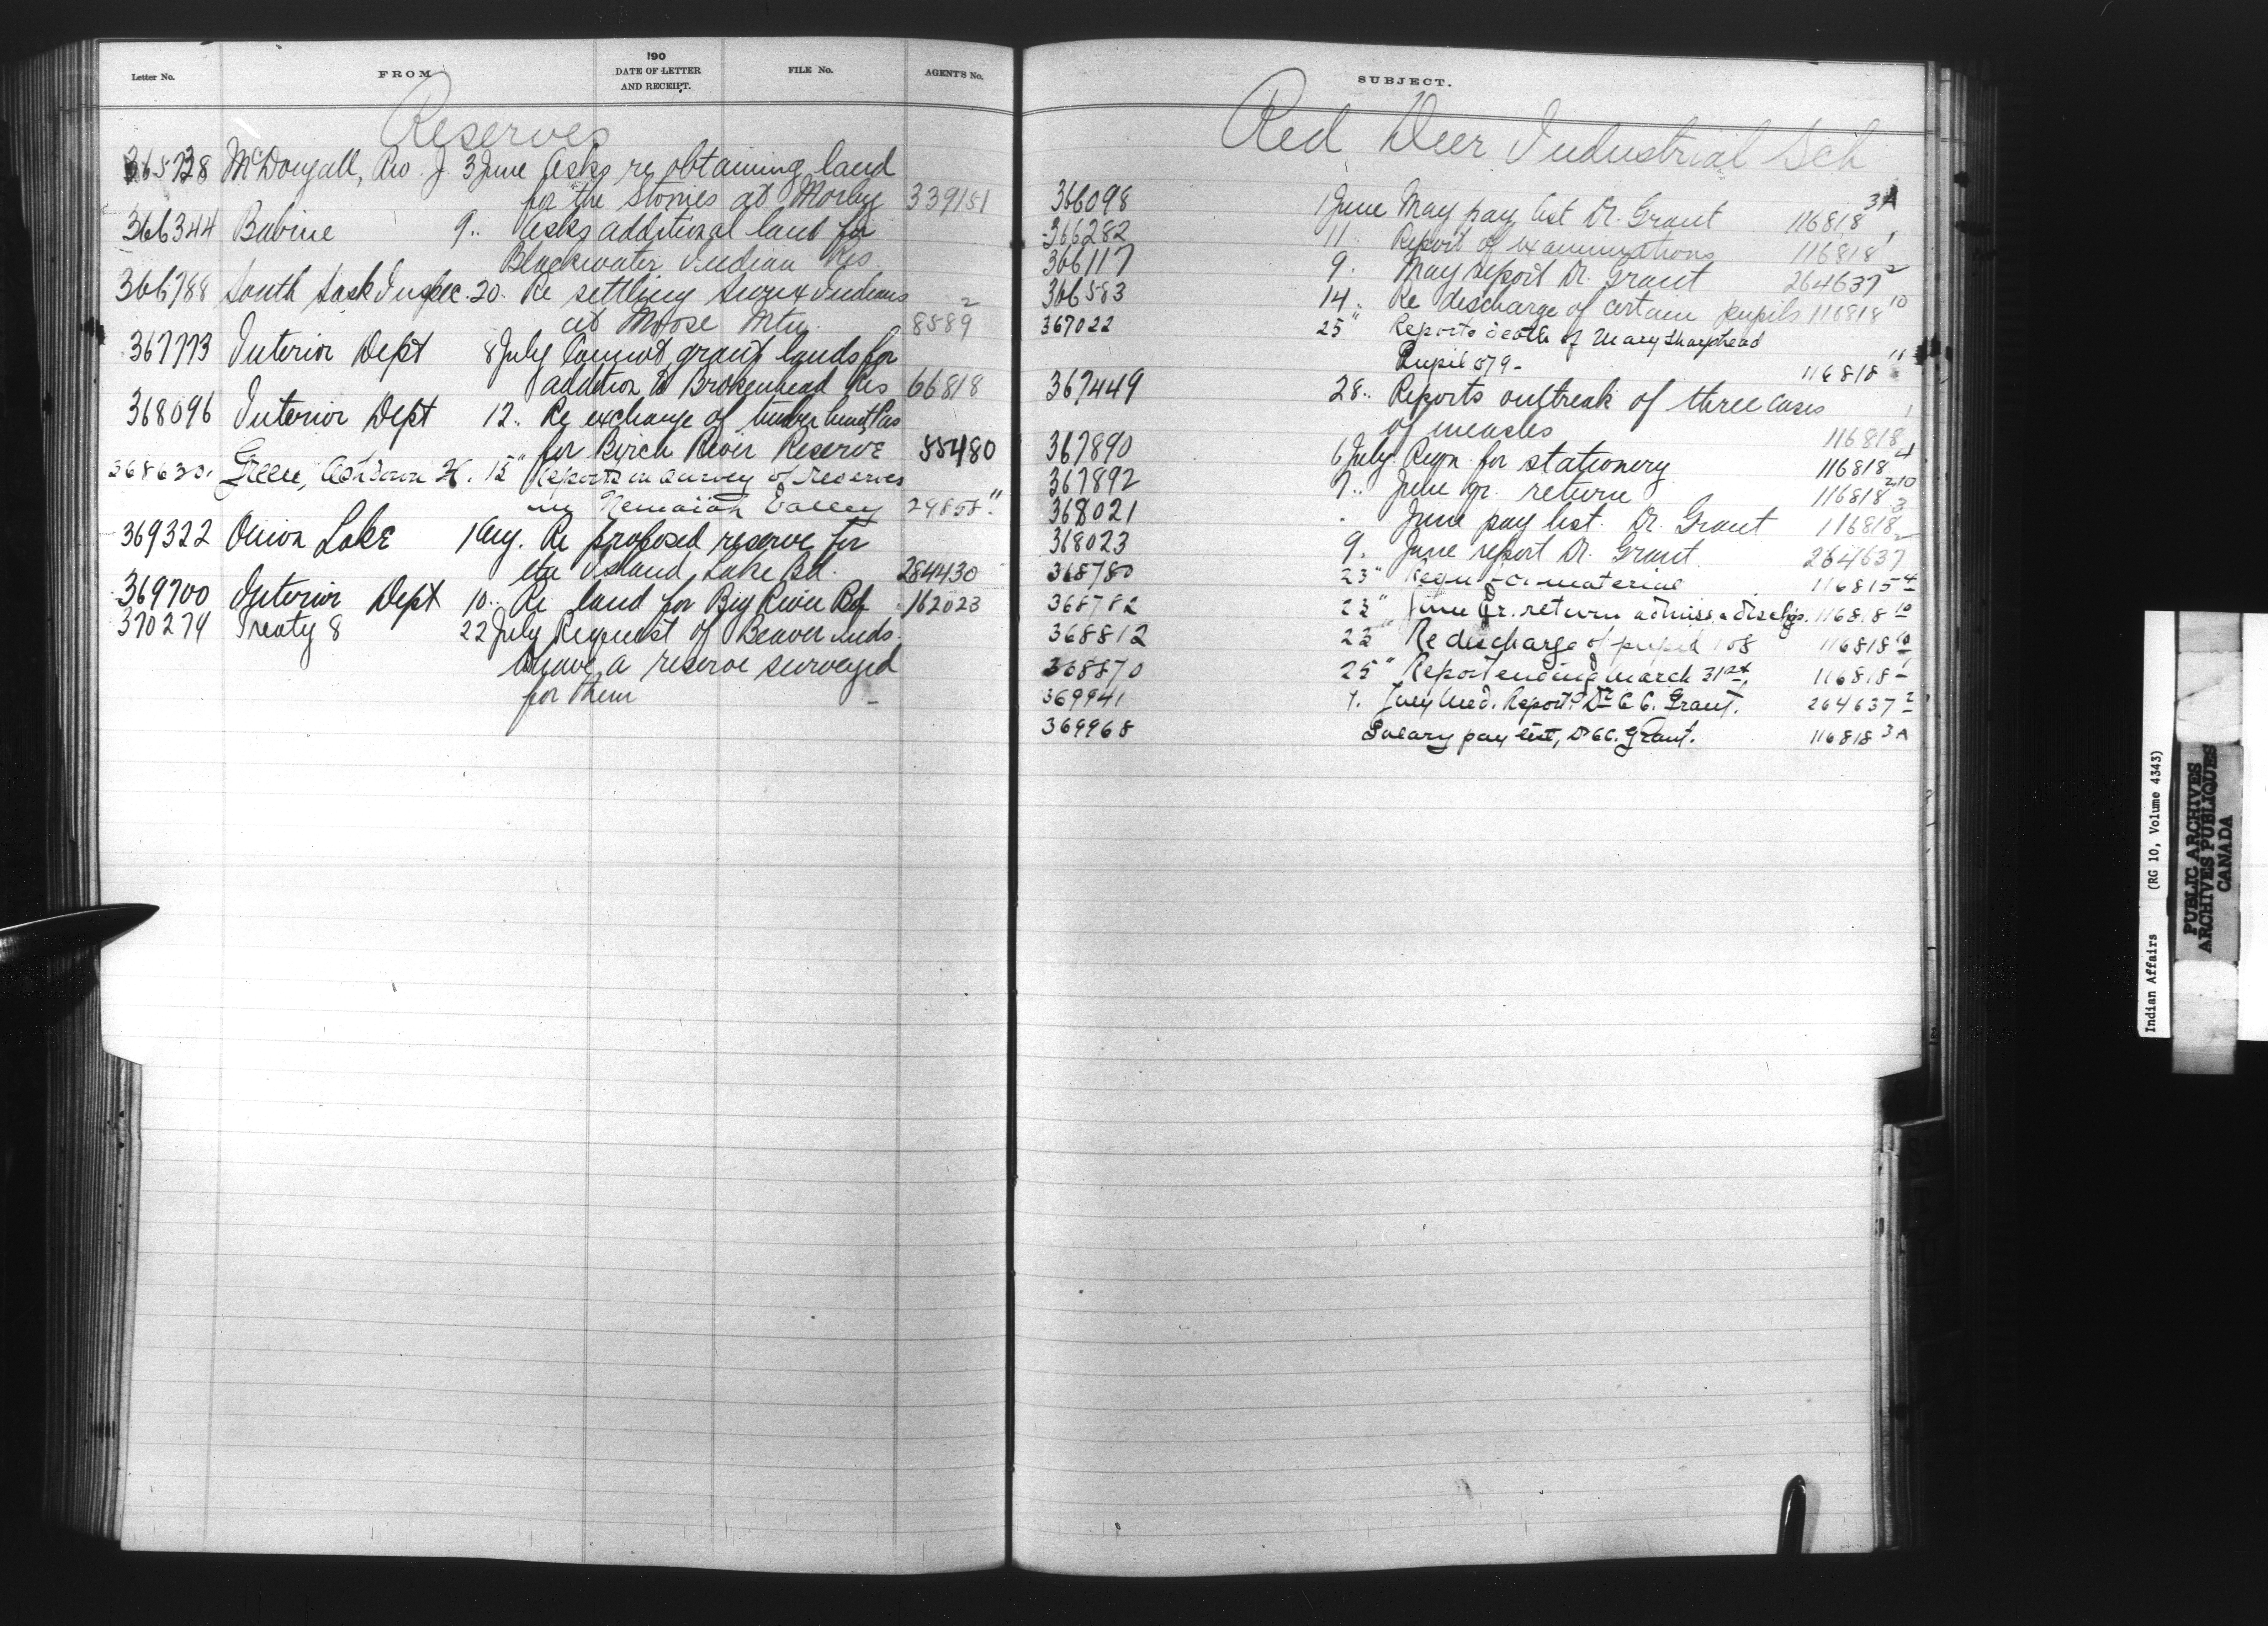 Letter No. FROM 190 DATE OF LETTER AND RECEIPT. FILE No. AGENT'S No.
Reserves
365738 McDougall, Rev. J. 3 June Asks re obtaining land
for the Stonies at Morley 339151
366344 Babine 9 " Asks additional land for
Blackwater Indian Res.
366788 South Sask Inspec. 20 " Re settling Sioux Indians
at Moose Mtn. 8589 2
367773 Interior Dept 8 July Cannot grant lands for
addition to Brokenhead Res 66818
368096 Interior Dept 12 " Re exchange of timber
for Birch River Reserve 55480
Green, Ashdown H. 15 " Reports on survey of reserves
in Nemaiah Valley 29858
369322 Onion Lake 1 Aug. Re proposed reserve for
Island Lake Bd. 284430
369700 Interior Dept 10 " Re land for Big River Bd 162023
370274 Treaty 8 22 July Request of Beaver Inds.
to have a reserve surveyed
for them
SUBJECT.
Red Deer Industrial Sch
366098 1 June May pay list Dr. Grant 116818 3A
366282 11 " Report of examinations 116818 1
366117 9 " May report Dr. Grant 264637 2
366583 14 " Re discharge of certain pupils 116818 10
367022 25 " Reports death of Mary Sharphead
Pupil 079 - 116818 11
367449 28 " Reports outbreak of three cases
of measles 116818 1
367890 6 July Reqn. for stationery 116818 4
367892 7 " June qr. return 116818 210
368021 " June pay list. Dr. Grant 116818 3
368023 9 " June report Dr. Grant 264637 2
368780 23 " Reqn for material 116815 4
368782 23 " June Qr. return admiss. & dischgs. 116818 10
368812 23 " Re discharge of pupil 108 116818 10
368870 25 " Report ending March 31st, 116818 1
369941 1. July Med. Report Dr C. C. Grant. 264637 2
369968 Salary pay list, Dr C.C. Grant. 116818 3A
Indian Affairs (RG 10, Volume 4343)
PUBLIC ARCHIVES
ARCHIVES PUBLIQUES
CANADA